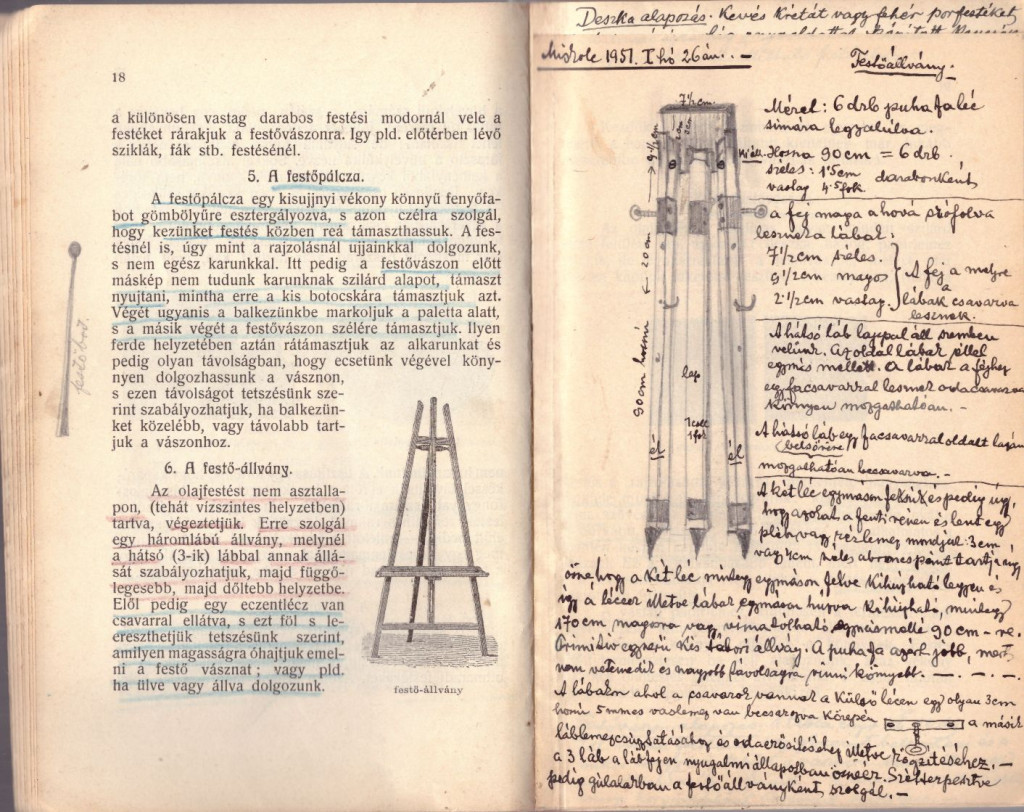 18
a különösen vastag darabos festési modornál vele a
festéket rárakjuk a festővászonra. Igy pld. előtérben lévő
sziklák, fák stb. festésénél.
5. A festőpálcza.
A festőpálcza egy kisujjnyi vékony könnyű fenyőfa-
bot gömbölyűre esztergályozva, s azon czélra szolgál,
hogy kezünket festés közben reá támaszthassuk. A fes-
tésnél is, úgy mint a rajzolásnál ujjainkkal dolgozunk,
s nem egész karunkkal. Itt pedig a festővászon előtt
máskép nem tudunk karunknak szilárd alapot, támaszt
nyujtani, mintha erre a kis botocskára támasztjuk azt.
Végét ugyanis a balkezünkbe markoljuk a paletta alatt,
s a másik végét a festővászon szélére támasztjuk. Ilyen
ferde helyzetében aztán rátámasztjuk az alkarunkat és
pedig olyan távolságban, hogy ecsetünk végével köny-
nyen dolgozhassunk a vásznon,
s ezen távolságot tetszésünk sze-
rint szabályozhatjuk, ha balkezün-
ket közelébb, vagy távolabb tart-
juk a vászonhoz.
6. A festő-állvány.
Az olajfestést nem asztalla-
pon, (tehát vízszintes helyzetben)
tartva, végeztetjük. Erre szolgál
egy háromlábú állvány, melynél
a hátsó (3-ik) lábbal annak állá-
sát szabályozhatjuk, majd függő-
legesebb, majd dőltebb helyzetbe.
Elől pedig egy eczentlécz van
csavarral ellátva, s ezt föl s le-
ereszthetjük tetszésünk szerint,
amilyen magasságra óhajtjuk emel-
ni a festő vásznat; vagy pld.
ha ülve vagy állva dolgozunk.
festő-állvány
festőbot.
Deszka alapozás. Kevés krétát vagy fehér porfestéket
Miskolc 1951. I hó 26án. . -
Festőállvány.
7½ cm
20 cm
90 cm hosszú
lap
1 coll
él
él
Méret: 6 drb puha fa léc
simára legyalulva.
Hossza 90 cm = 6 drb.
széles: 1.5 cm darabonként
vastag
a fej maga ahová
lesznek a lábak:
7½ cm széles.
9½ cm magas
2½ cm vastag.
A fej a melyre
a
lábak csavarva
lesznek.
A hátsó láb lappal áll szemben
velünk. Az oldal lábak éllel
egymás mellett. A lábak a fejhez
egy facsavarral lesznek odacsavarva
könnyen mozgathatóan. -
A hátsó láb egy facsavarral oldalt lapján
(belsőrésze)
mozgathatóan becsavarva. -
A két léc egymáson fekszik és pedig úgy,
hogy azokat a fenti részen és lent egy
pléh vagy rézlemez mondjuk 3 cm,
vagy 4 cm széles abroncs pánt tartja
össze, hogy a két léc mindég egymáson fekve kihúzható legyen és
így a lécek illetve lábak egymáson húzva kihúzható, mintegy
170 cm magasra vagy visszatolható egymás mellé 90 cm-re.
Primitív egyszerű kis tábori állvány. A puha fa azért jobb, mert
nem vetemedik és nagyobb távolságra vinni könnyebb. -. -. -.
A lábakon ahol a csavarok vannak a külső lécen egy olyan 3 cm
hosszú 5 mmes vaslemez van becsavarozva közepén
a másik
és odaerősítéséhez illetve rögzítéséhez. -
a 3 láb a lábfejen nyugalmi állapotban összeér. Szétterpesztve
pedig gúlalakban a festőállványként szolgál. -